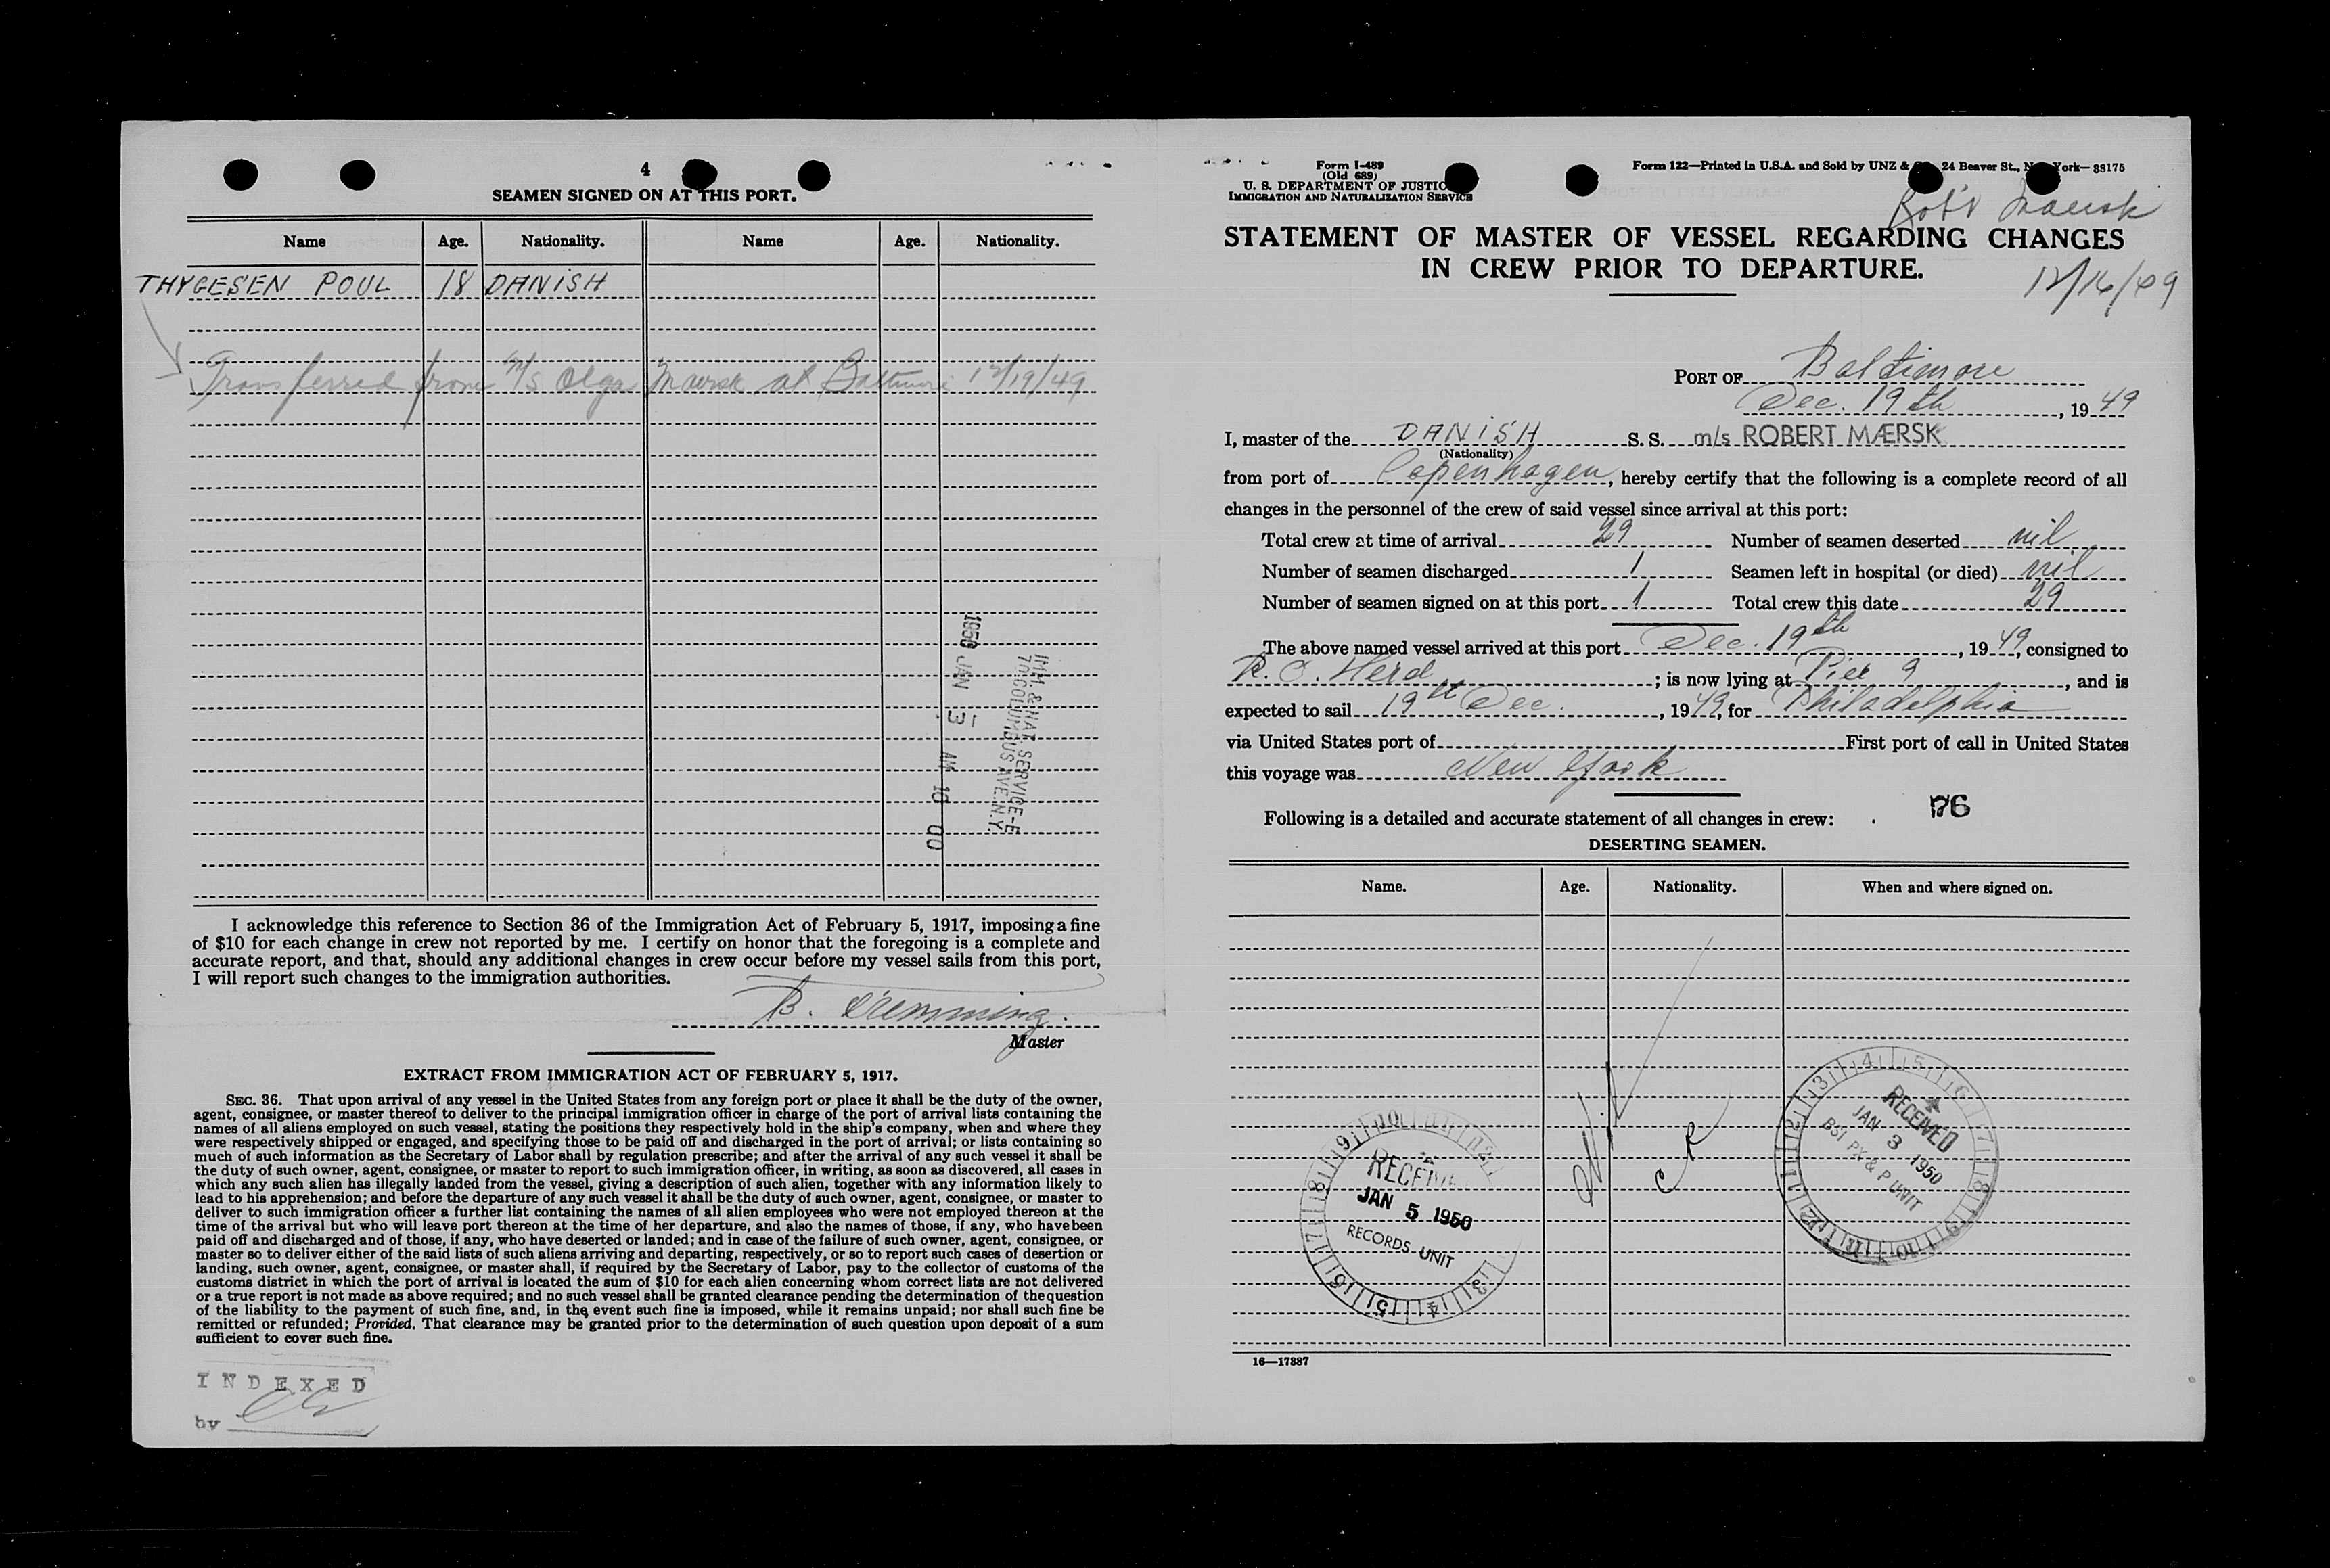 4
SEAMEN SIGNED ON AT THIS PORT.
Name Age. Nationality. Name Age. Nationality.
THYGESEN POUL 18 DANISH
Transferred from M/S Olga Maersk at Baltimore 12/19/49
1950 JAN 3 AM 10 00
IMM. & NAT. SERVICE-E
70 COLUMBUS AVE. N.Y.
I acknowledge this reference to Section 36 of the Immigration Act of February 5, 1917, imposing a fine
of $10 for each change in crew not reported by me. I certify on honor that the foregoing is a complete and
accurate report, and that, should any additional changes in crew occur before my vessel sails from this port,
I will report such changes to the immigration authorities.
B.
Master
EXTRACT FROM IMMIGRATION ACT OF FEBRUARY 5, 1917.
SEC. 36. That upon arrival of any vessel in the United States from any foreign port or place it shall be the duty of the owner,
agent, consignee, or master thereof to deliver to the principal immigration officer in charge of the port of arrival lists containing the
names of all aliens employed on such vessel, stating the positions they respectively hold in the ship's company, when and where they
were respectively shipped or engaged, and specifying those to be paid off and discharged in the port of arrival; or lists containing so
much of such information as the Secretary of Labor shall by regulation prescribe; and after the arrival of any such vessel it shall be
the duty of such owner, agent, consignee, or master to report to such immigration officer, in writing, as soon as discovered, all cases in
which any such alien has illegally landed from the vessel, giving a description of such alien, together with any information likely to
lead to his apprehension; and before the departure of any such vessel it shall be the duty of such owner, agent, consignee, or master to
deliver to such immigration officer a further list containing the names of all alien employees who were not employed thereon at the
time of the arrival but who will leave port thereon at the time of her departure, and also the names of those, if any, who have been
paid off and discharged and of those, if any, who have deserted or landed; and in case of the failure of such owner, agent, consignee, or
master so to deliver either of the said lists of such aliens arriving and departing, respectively, or so to report such cases of desertion or
landing, such owner, agent, consignee, or master shall, if required by the Secretary of Labor, pay to the collector of customs of the
customs district in which the port of arrival is located the sum of $10 for each alien concerning whom correct lists are not delivered
or a true report is not made as above required; and no such vessel shall be granted clearance pending the determination of the question
of the liability to the payment of such fine, and, in the event such fine is imposed, while it remains unpaid; nor shall such fine be
remitted or refunded; Provided, That clearance may be granted prior to the determination of such question upon deposit of a sum
sufficient to cover such fine.
INDEXED
by
Form I-489
(Old 689)
U. S. DEPARTMENT OF JUSTICE
IMMIGRATION AND NATURALIZATION SERVICE
Form 122—Printed in U.S.A. and Sold by UNZ & 24 Beaver St., New York—38175
Rob't Maersk
STATEMENT OF MASTER OF VESSEL REGARDING CHANGES
IN CREW PRIOR TO DEPARTURE.
12/16/49
PORT OF Baltimore
Dec. 19th, 1949
I, master of the DANISH S. S. m/s ROBERT MÆRSK
(Nationality)
from port of Copenhagen, hereby certify that the following is a complete record of all
changes in the personnel of the crew of said vessel since arrival at this port:
Total crew at time of arrival 29 Number of seamen deserted nil
Number of seamen discharged 1 Seamen left in hospital (or died) nil
Number of seamen signed on at this port 1 Total crew this date 29
The above named vessel arrived at this port Dec. 19th, 1949, consigned to
R. C. Herd; is now lying at Pier 9, and is
expected to sail 19th Dec., 1949, for Philadelphia
via United States port of First port of call in United States
this voyage was New York
Following is a detailed and accurate statement of all changes in crew: 176
DESERTING SEAMEN.
Name. Age. Nationality. When and where signed on.
Nil
RECEIVED
JAN 5 1950
RECORDS UNIT
RECEIVED
JAN 3 1950
BSI PX & P UNIT
16—17887